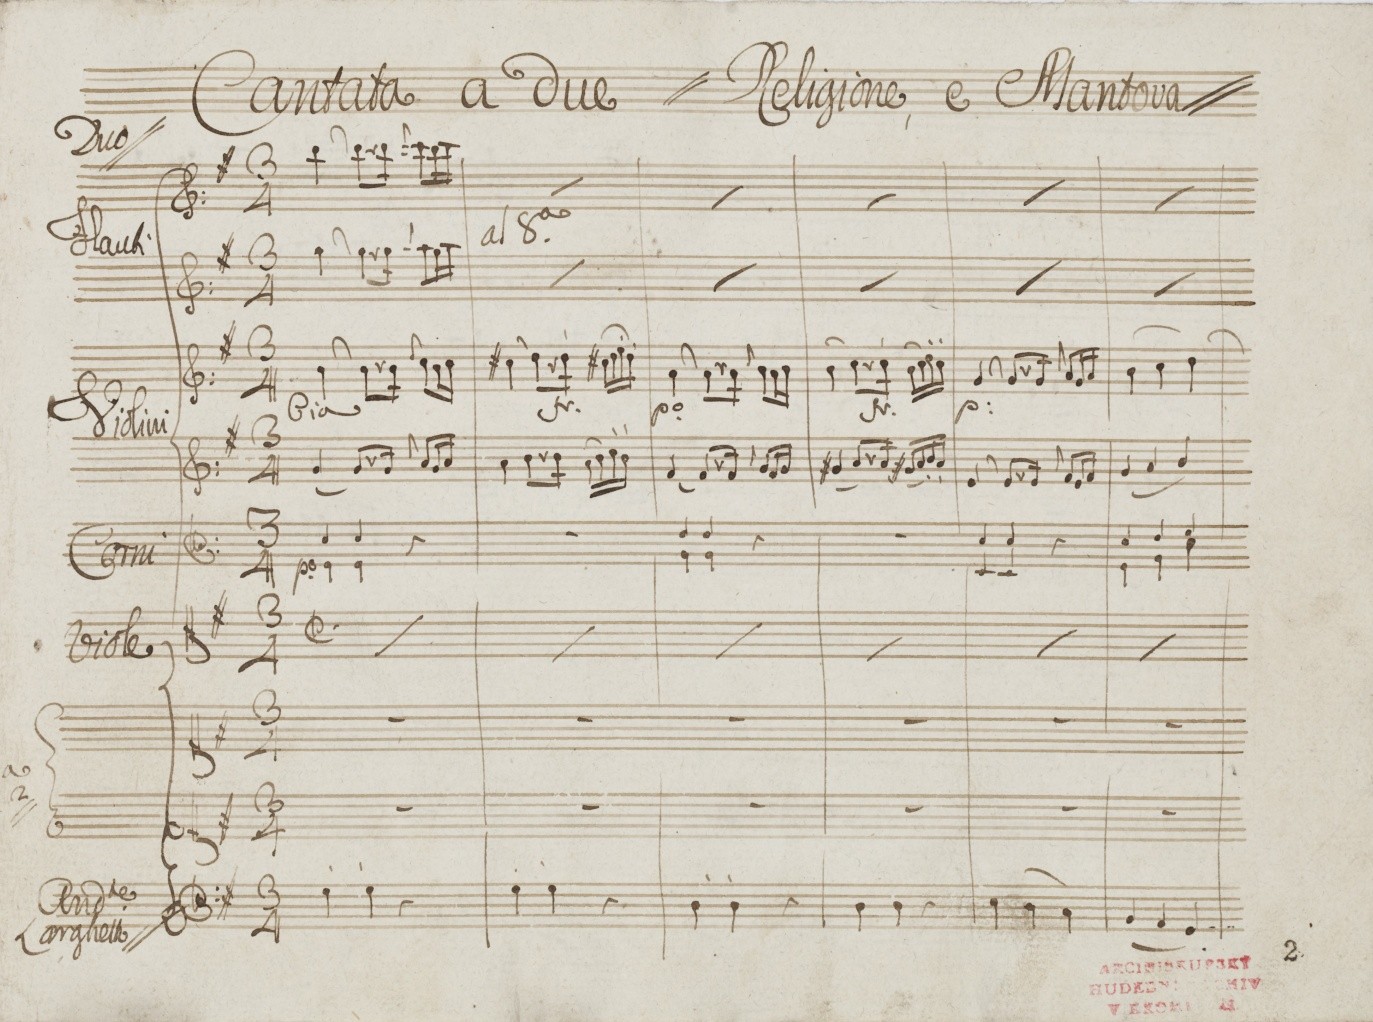 Cantata a Due // Religione, e Mantova //
Duo //
Flauti
al 8.a
Violini
Pia fr. po fr. p:
Corni
po
Viole
a
2 //
And.te
Larghetto //
2.
ARCIBISKUPSKÝ
HUDEBNÍ ARCHIV
V KROMĚŘÍŽI